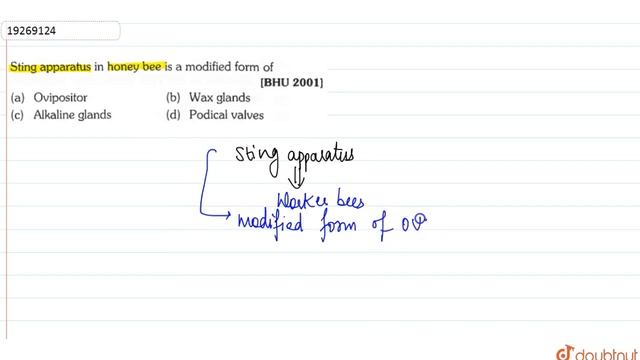 19269124
Sting apparatus in honey bee is a modified form of
[BHU 2001]
(a) Ovipositor (b) Wax glands
(c) Alkaline glands (d) Podical valves
Sting apparatus
Worker bees
modified form of
doubtnut